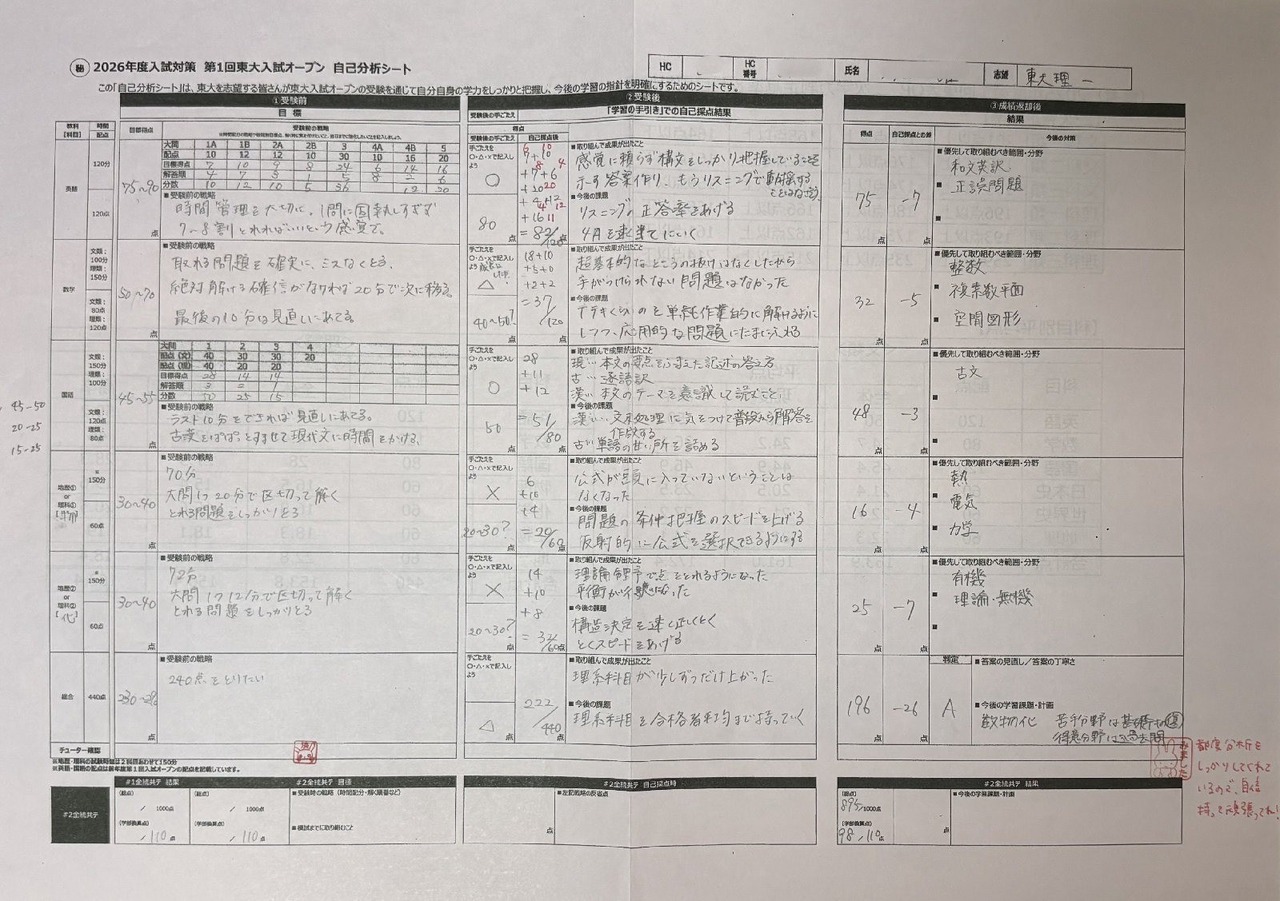 ㊙ 2026年度入試対策 第1回東大入試オープン 自己分析シート
HC
HC番号
氏名
志望 東大理一
この「自己分析シート」は、東大を志望する皆さんが東大入試オープンの受験を通じて自分自身の学力をしっかりと把握し、今後の学習の指針を明確にするためのシートです。
①受験前
目標
②受験後
「学習の手引き」での自己採点結果
③成績返却後
結果
教科【科目】 時間 配点 目標得点 受験前の戦略
受験後の手ごたえ 得点 自己採点後
得点 自己採点との差 今後の対策
英語
120分
120点
75~90
点
大問 1A 1B 2A 2B 3 4A 4B 5
配点 10 12 12 10 30 10 16 20
目標得点
解答順
分数
■受験前の戦略
時間管理を大切に。1問に固執しすぎず
7~8割とれればいいという感覚で。
手ごたえを○・△・×で記入しよう
○
80
= 82/120
■取り組んで成果が出たこと
感覚に頼らず構文をしっかり把握していることを
示す答案作り、もうリスニングで動揺する
ことはなさそう
■今後の課題
リスニングの正答率をあげる
4Aを速攻でにいく
75
点
-7
点
■優先して取り組むべき範囲・分野
和文英訳
正誤問題
数学
文類:100分
理類:150分
文類:80点
理類:120点
50~70
点
■受験前の戦略
取れる問題を確実に、ミスなくとる。
絶対解ける確信がなければ20分で次に移る。
最後の10分は見直しにあてる。
手ごたえを○・△・×で記入しよう
△
40~50?
18+10
+5+0
+2+2
= 37/120
■取り組んで成果が出たこと
超基本的なところの抜けはなくしたから
手がつけられない問題はなかった
■今後の課題
プラチカくらいのを単純作業的に解けるように
しつつ、応用的な問題にたまにふれる
32
点
-5
点
■優先して取り組むべき範囲・分野
整数
複素数平面
空間図形
国語
文類:150分
理類:100分
文類:120点
理類:80点
45~55
点
45-50
20-25
15-25
大問 1 2 3 4
配点(文) 40 30 30 20
配点(理) 40 20 20
目標得点 28 14 14
解答順
分数 50 25 15
■受験前の戦略
ラスト10分をできれば見直しにあてる。
古漢をぱぱっとすませて現代文に時間をかける。
手ごたえを○・△・×で記入しよう
○
50
28
+11
+12
= 51/80
■取り組んで成果が出たこと
現… 本文の要点をふまえた記述の答え方
古… 逐語訳
漢… 本文のテーマを意識して読むこと
■今後の課題
漢… 文末処理に気をつけて普段から解答を
作成する
古… 単語の甘い所を詰める
48
点
-3
点
■優先して取り組むべき範囲・分野
古文
地歴① or 理科① 【物】
※150分
60点
30~40
点
■受験前の戦略
70分
大問1つ20分で区切って解く
とれる問題をしっかりとる
手ごたえを○・△・×で記入しよう
×
20~30?
6
+10
+4
= 20/60
■取り組んで成果が出たこと
公式が頭に入っていないということは
なくなった
■今後の課題
問題の条件把握のスピードを上げる
反射的に公式を選択できるようにする
16
点
-4
点
■優先して取り組むべき範囲・分野
熱
電気
力学
地歴② or 理科② 【化】
※150分
60点
30~40
点
■受験前の戦略
72分
大問1つ12分で区切って解く
とれる問題をしっかりとる
手ごたえを○・△・×で記入しよう
×
20~30?
14
+10
+8
= 32/60
■取り組んで成果が出たこと
理論分野で点をとれるようになった
■今後の課題
構造決定を速く正しくとく
とくスピードをあげる
25
点
-7
点
■優先して取り組むべき範囲・分野
有機
理論・無機
総合
440点
点
■受験前の戦略
240点をとりたい
手ごたえを○・△・×で記入しよう
△
222/440
■取り組んで成果が出たこと
理系科目が少しずつだけ上がった
■今後の課題
理系科目を合格者平均まで持っていく
196
点
-26
点
判定
A
■答案の見直し/答案の丁寧さ
■今後の学習課題・計画
数物化 苦手分野は基礎
得意分野は過去問
チューター確認
みました
都度分析を
しっかりしてくれて
いるので、自信
持って頑張ってね!
※地歴・理科の試験時間は2科目あわせて150分
※英語・国語の配点は前年度第1回入試オープンの配点を記載しています。
#2全統共テ
#1全統共テ 結果
#2全統共テ 目標
#2全統共テ 自己採点時
#2全統共テ 結果
(総点) / 1000点
(総点) / 1000点
(学部換算点) / 110点
(学部換算点) / 110点
■受験時の戦略(時間配分・解く順番など)
■模試までに取り組むこと
点
■左記戦略の反省点
(総点) 895/1000点
(学部換算点) 98/110点
■今後の学習課題・計画